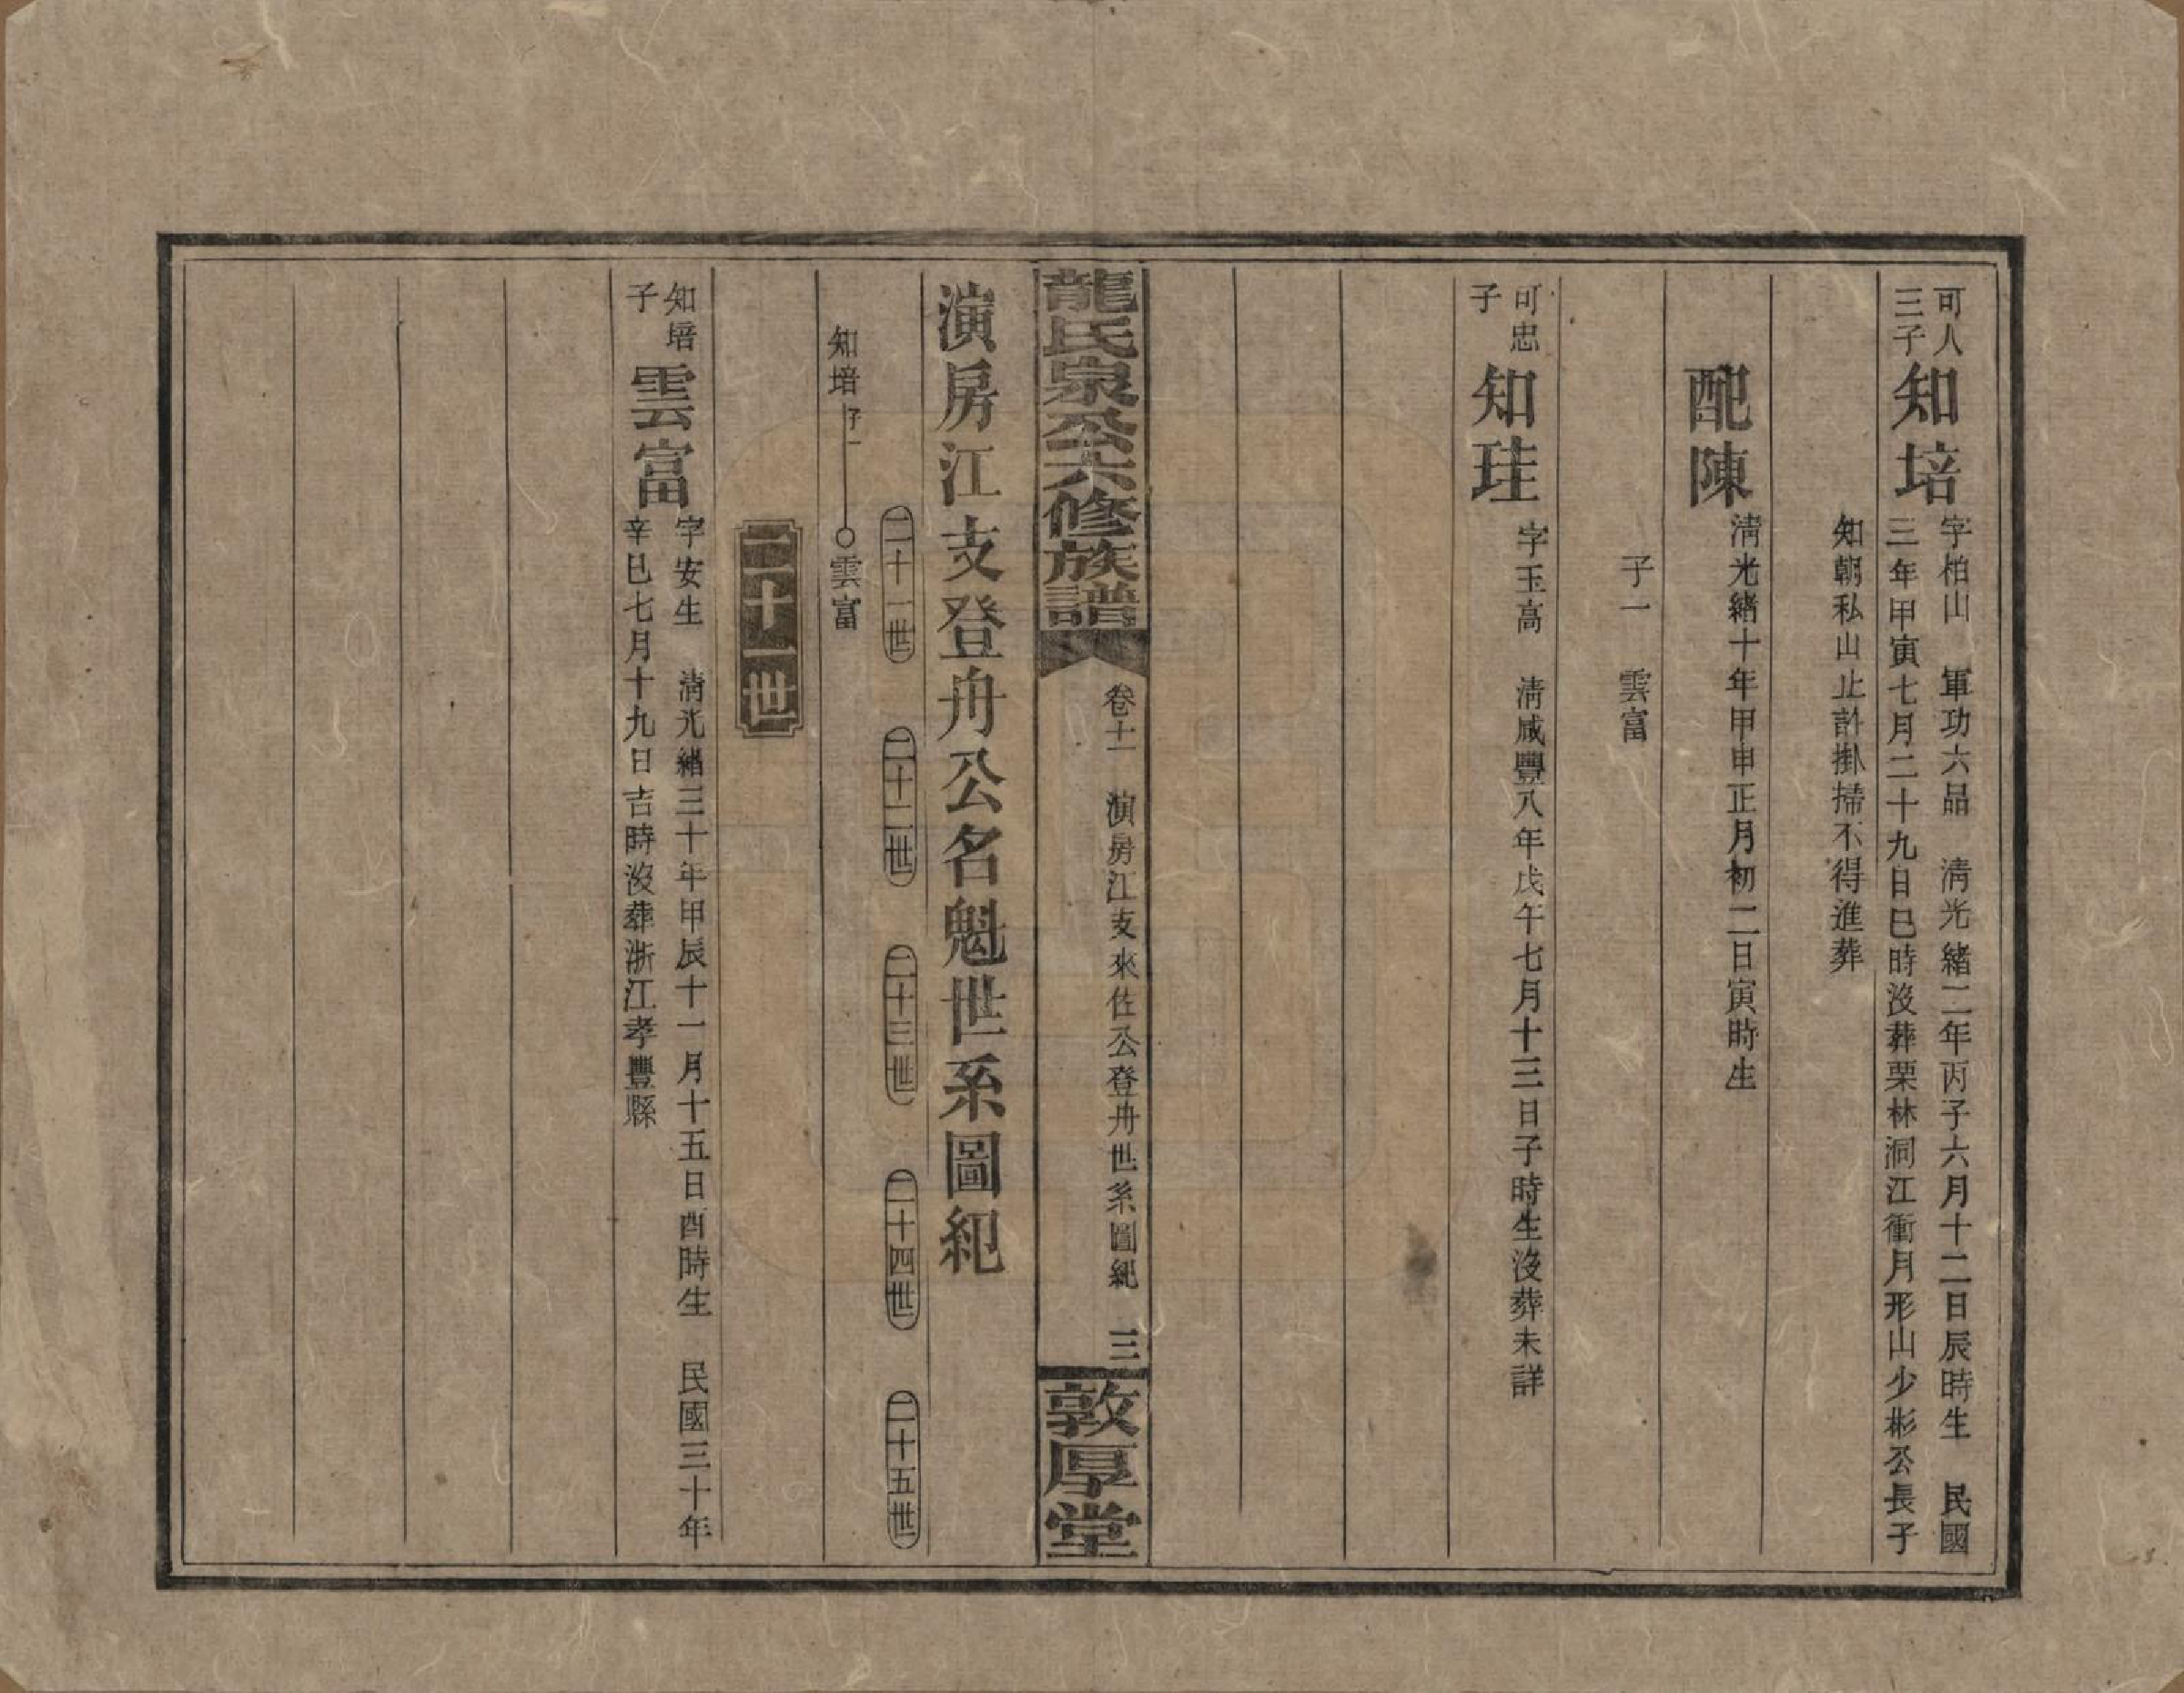 可人
三子
知培
字柏山　軍功六品　淸光緒二年丙子六月十二日辰時生　民國
三年甲寅七月二十九日巳時沒葬栗林洞江衝月形山少彬公長子
知朝私山止許掛掃不得進葬
配陳
淸光緒十年甲申正月初二日寅時生
子一　雲富
可忠
子
知珪
字玉高　淸咸豐八年戊午七月十三日子時生沒葬未詳
龍氏泉公六修族譜
卷十一　演房江支來佐公登舟世系圖紀　三
敦厚堂
演房江支登舟公名魁世系圖紀
二十一世　二十二世　二十三世　二十四世　二十五世
知培　子一　雲富
二十一世
知培
子
雲富
字安生　淸光緒三十年甲辰十一月十五日酉時生　民國三十年
辛巳七月十九日吉時沒葬浙江孝豐縣